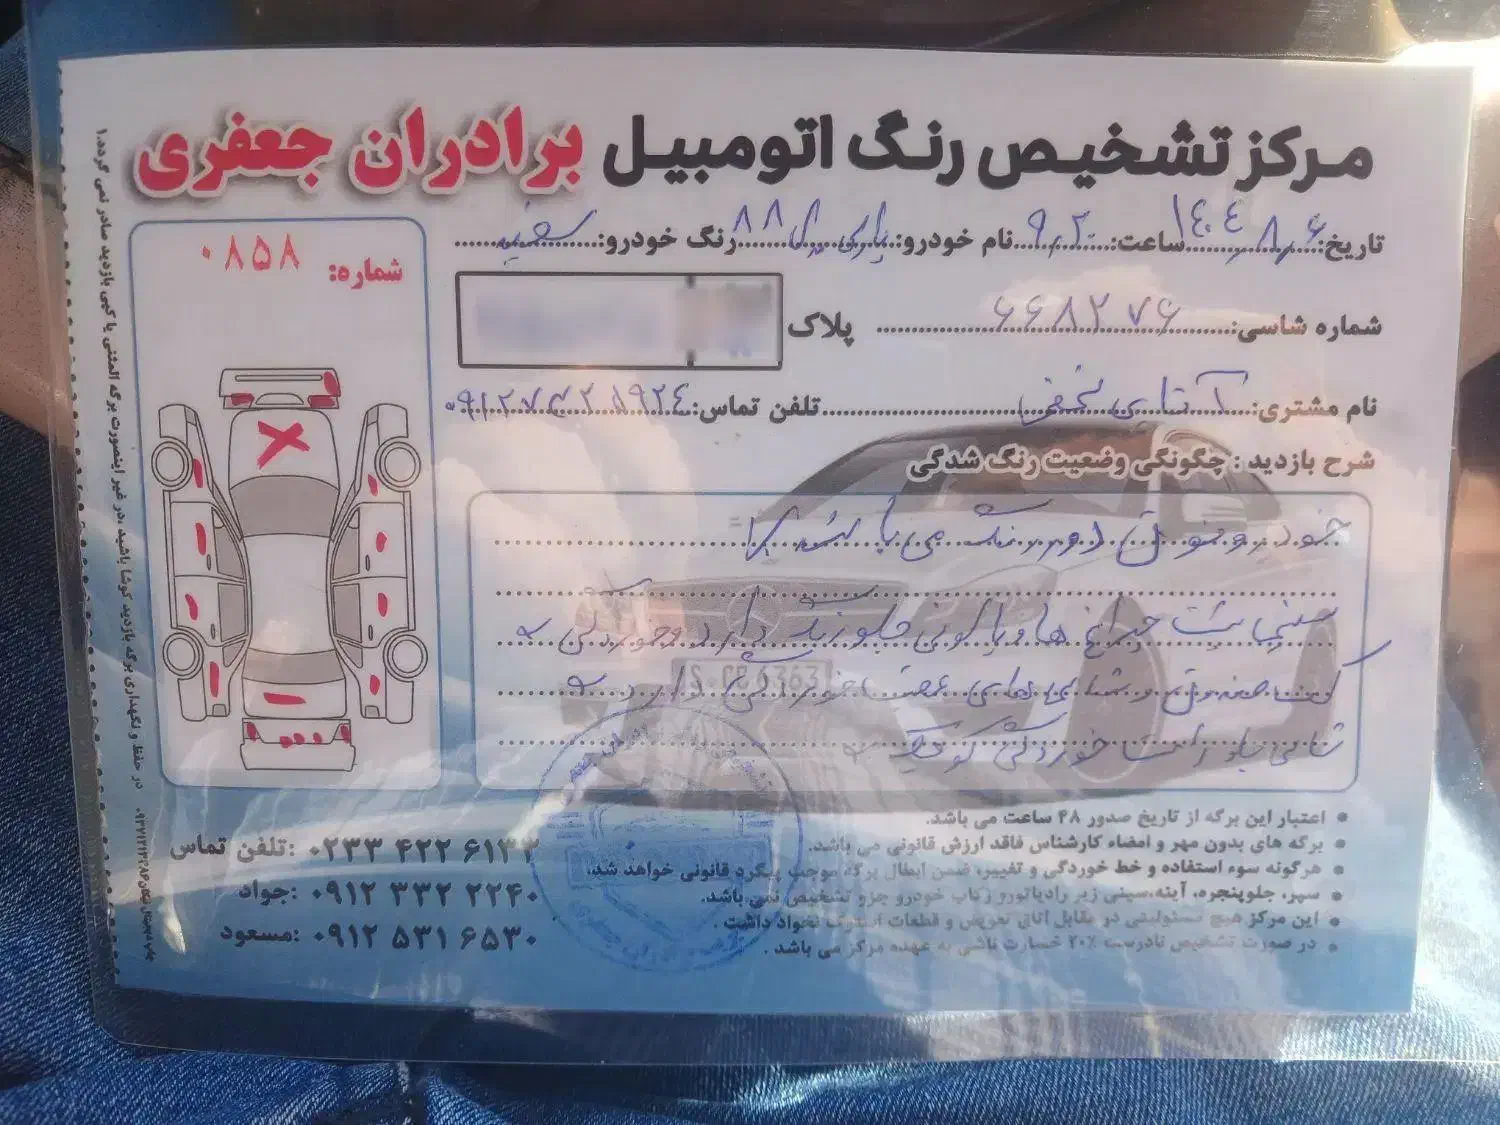 مرکز تشخیص رنگ اتومبیل برادران جعفری
تاریخ: ۱۴۰۴/۸/۶ ساعت: ۹:۲۰ نام خودرو: پارس سال ۸۸ رنگ خودرو: سفید
شماره: ۰۸۵۸
شماره شاسی: ۶۶۸۲۷۶ پلاک
نام مشتری: آقای نجفی تلفن تماس:
شرح بازدید : چگونگی وضعیت رنگ شدگی
خودرو فوق دور رنگ می باشد
سینی پشت چراغ ها و بالونی جلو رنگ دارد و خوردگی
کف صندوق و شاسی های عقب خوردگی دارد
شاسی جلو راست خوردگی کوچک
اعتبار این برگه از تاریخ صدور ۴۸ ساعت می باشد.
برگه های بدون مهر و امضاء کارشناس فاقد ارزش قانونی می باشد.
هرگونه سوء استفاده و خط خوردگی و تغییر، ضمن ابطال برگه موجب پیگرد قانونی خواهد شد.
سپر، جلوپنجره، آینه، سینی زیر رادیاتور و رکاب خودرو جزو تشخیص نمی باشد.
این مرکز هیچ مسئولیتی در مقابل اتاق تعویض و قطعات استوک نخواد داشت .
در صورت تشخیص نادرست ۲۰٪ خسارت ناشی به عهده مرکز می باشد .
تلفن تماس: ۰۲۳۳ ۴۲۲ ۶۱۳۳
جواد: ۰۹۱۲ ۳۳۲ ۲۲۴۰
مسعود: ۰۹۱۲ ۵۳۱ ۶۵۳۰
در حفظ و نگهداری برگه بازدید کوشا باشید ،در غیر اینصورت برگه المثنی یا کپی بازدید صادر نمی گردد.